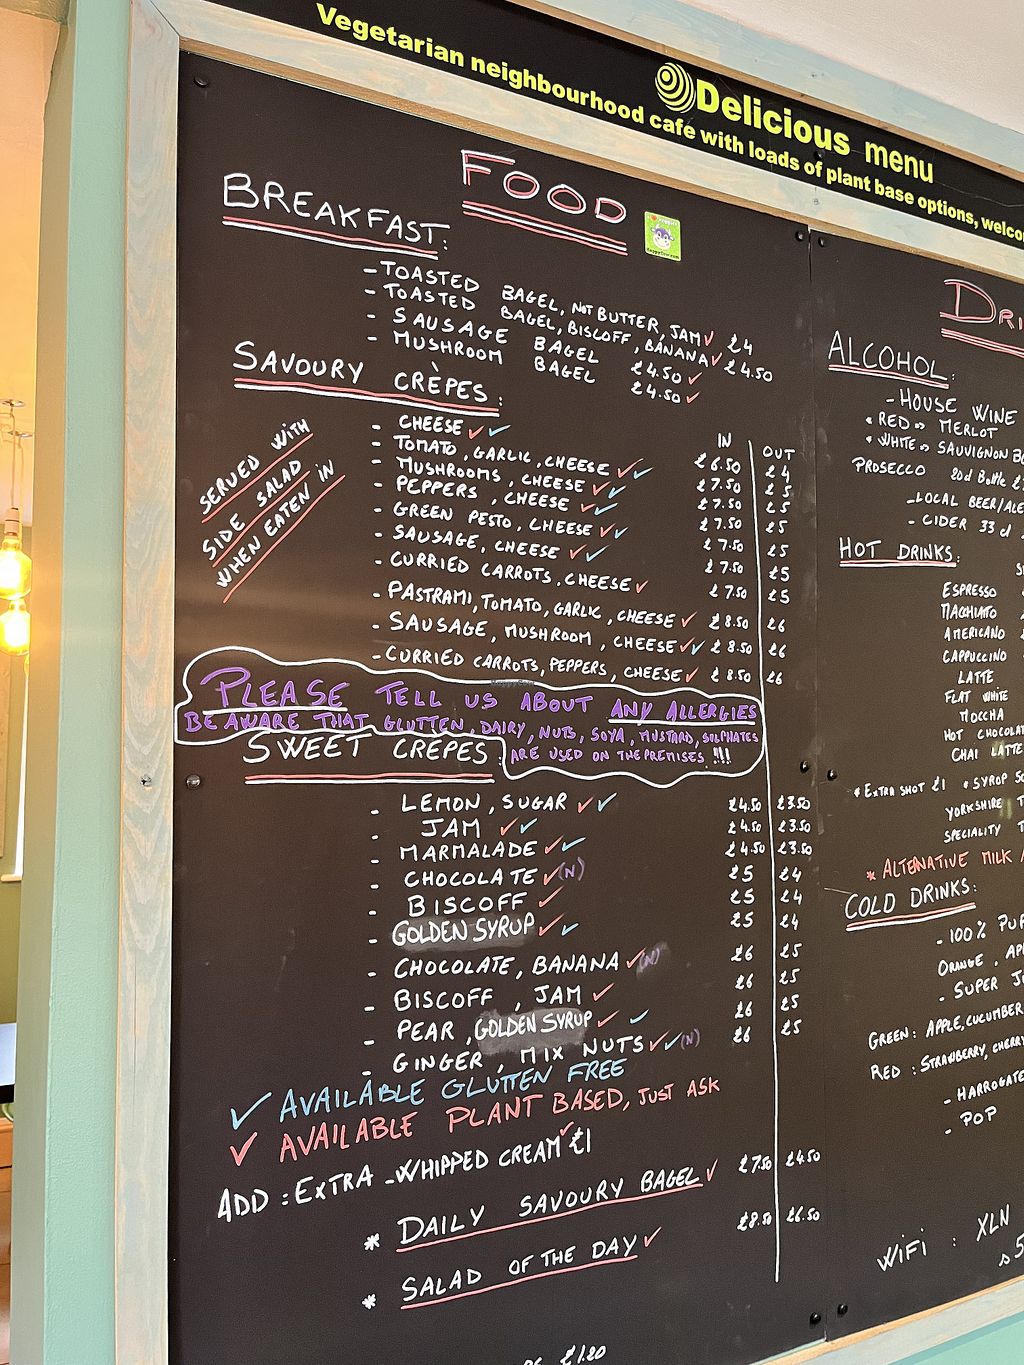 Delicious menu
Vegetarian neighbourhood cafe with loads of plant base options, welco
FOOD
BREAKFAST:
- TOASTED BAGEL, NOT BUTTER, JAM ✓ £4
- TOASTED BAGEL, BISCOFF, BANANA ✓ £4.50
- SAUSAGE BAGEL £4.50 ✓
- MUSHROOM BAGEL £4.50 ✓
SAVOURY CRÈPES:
SERVED WITH
SIDE SALAD
WHEN EATEN IN
IN OUT
- CHEESE ✓✓ £6.50 £4
- TOMATO, GARLIC, CHEESE ✓✓ £7.50 £5
- MUSHROOMS, CHEESE ✓✓ £7.50 £5
- PEPPERS, CHEESE ✓✓ £7.50 £5
- GREEN PESTO, CHEESE ✓✓ £7.50 £5
- SAUSAGE, CHEESE ✓✓ £7.50 £5
- CURRIED CARROTS, CHEESE ✓
- PASTRAMI, TOMATO, GARLIC, CHEESE ✓ £8.50 £6
- SAUSAGE, MUSHROOM, CHEESE ✓✓ £8.50 £6
- CURRIED CARROTS, PEPPERS, CHEESE ✓ £8.50 £6
PLEASE TELL US ABOUT ANY ALLERGIES
BE AWARE THAT GLUTTEN, DAIRY, NUTS, SOYA, MUSTARD, SULPHATES
ARE USED ON THE PREMISES !!!
SWEET CRÊPES:
- LEMON, SUGAR ✓✓ £4.50 £3.50
- JAM ✓✓ £4.50 £3.50
- MARMALADE ✓✓ £4.50 £3.50
- CHOCOLATE ✓(N) £5 £4
- BISCOFF ✓ £5 £4
- GOLDEN SYRUP ✓✓ £5 £4
- CHOCOLATE, BANANA ✓(N) £6 £5
- BISCOFF, JAM ✓ £6 £5
- PEAR, GOLDEN SYRUP ✓✓ £6 £5
- GINGER, MIX NUTS ✓✓(N) £6 £5
✓ AVAILABLE GLUTTEN FREE
✓ AVAILABLE PLANT BASED, JUST ASK
ADD: EXTRA - WHIPPED CREAM ✓ £1
* DAILY SAVOURY BAGEL ✓ £7.50 £4.50
* SALAD OF THE DAY ✓ £8.50 £6.50
£1.20
DRI
ALCOHOL:
- HOUSE WINE
* RED => MERLOT
* WHITE => SAUVIGNON B
PROSECCO 20cl Bottle £
- LOCAL BEER/ALE
- CIDER 33 cl
HOT DRINKS:
ESPRESSO
MACCHIATO
AMERICANO £
CAPPUCCINO
LATTE
FLAT WHITE
MOCCHA
HOT CHOCOLAT
CHAI LATTE
* EXTRA SHOT £1 * SYROP 50
YORKSHIRE T
SPECIALITY T
* ALTERNATIVE MILK
COLD DRINKS:
- 100% PUR
ORANGE, APP
- SUPER J
GREEN: APPLE, CUCUMBER
RED: STRAWBERRY, CHERRY
- HARROGATE
- POP
WiFi: XLN